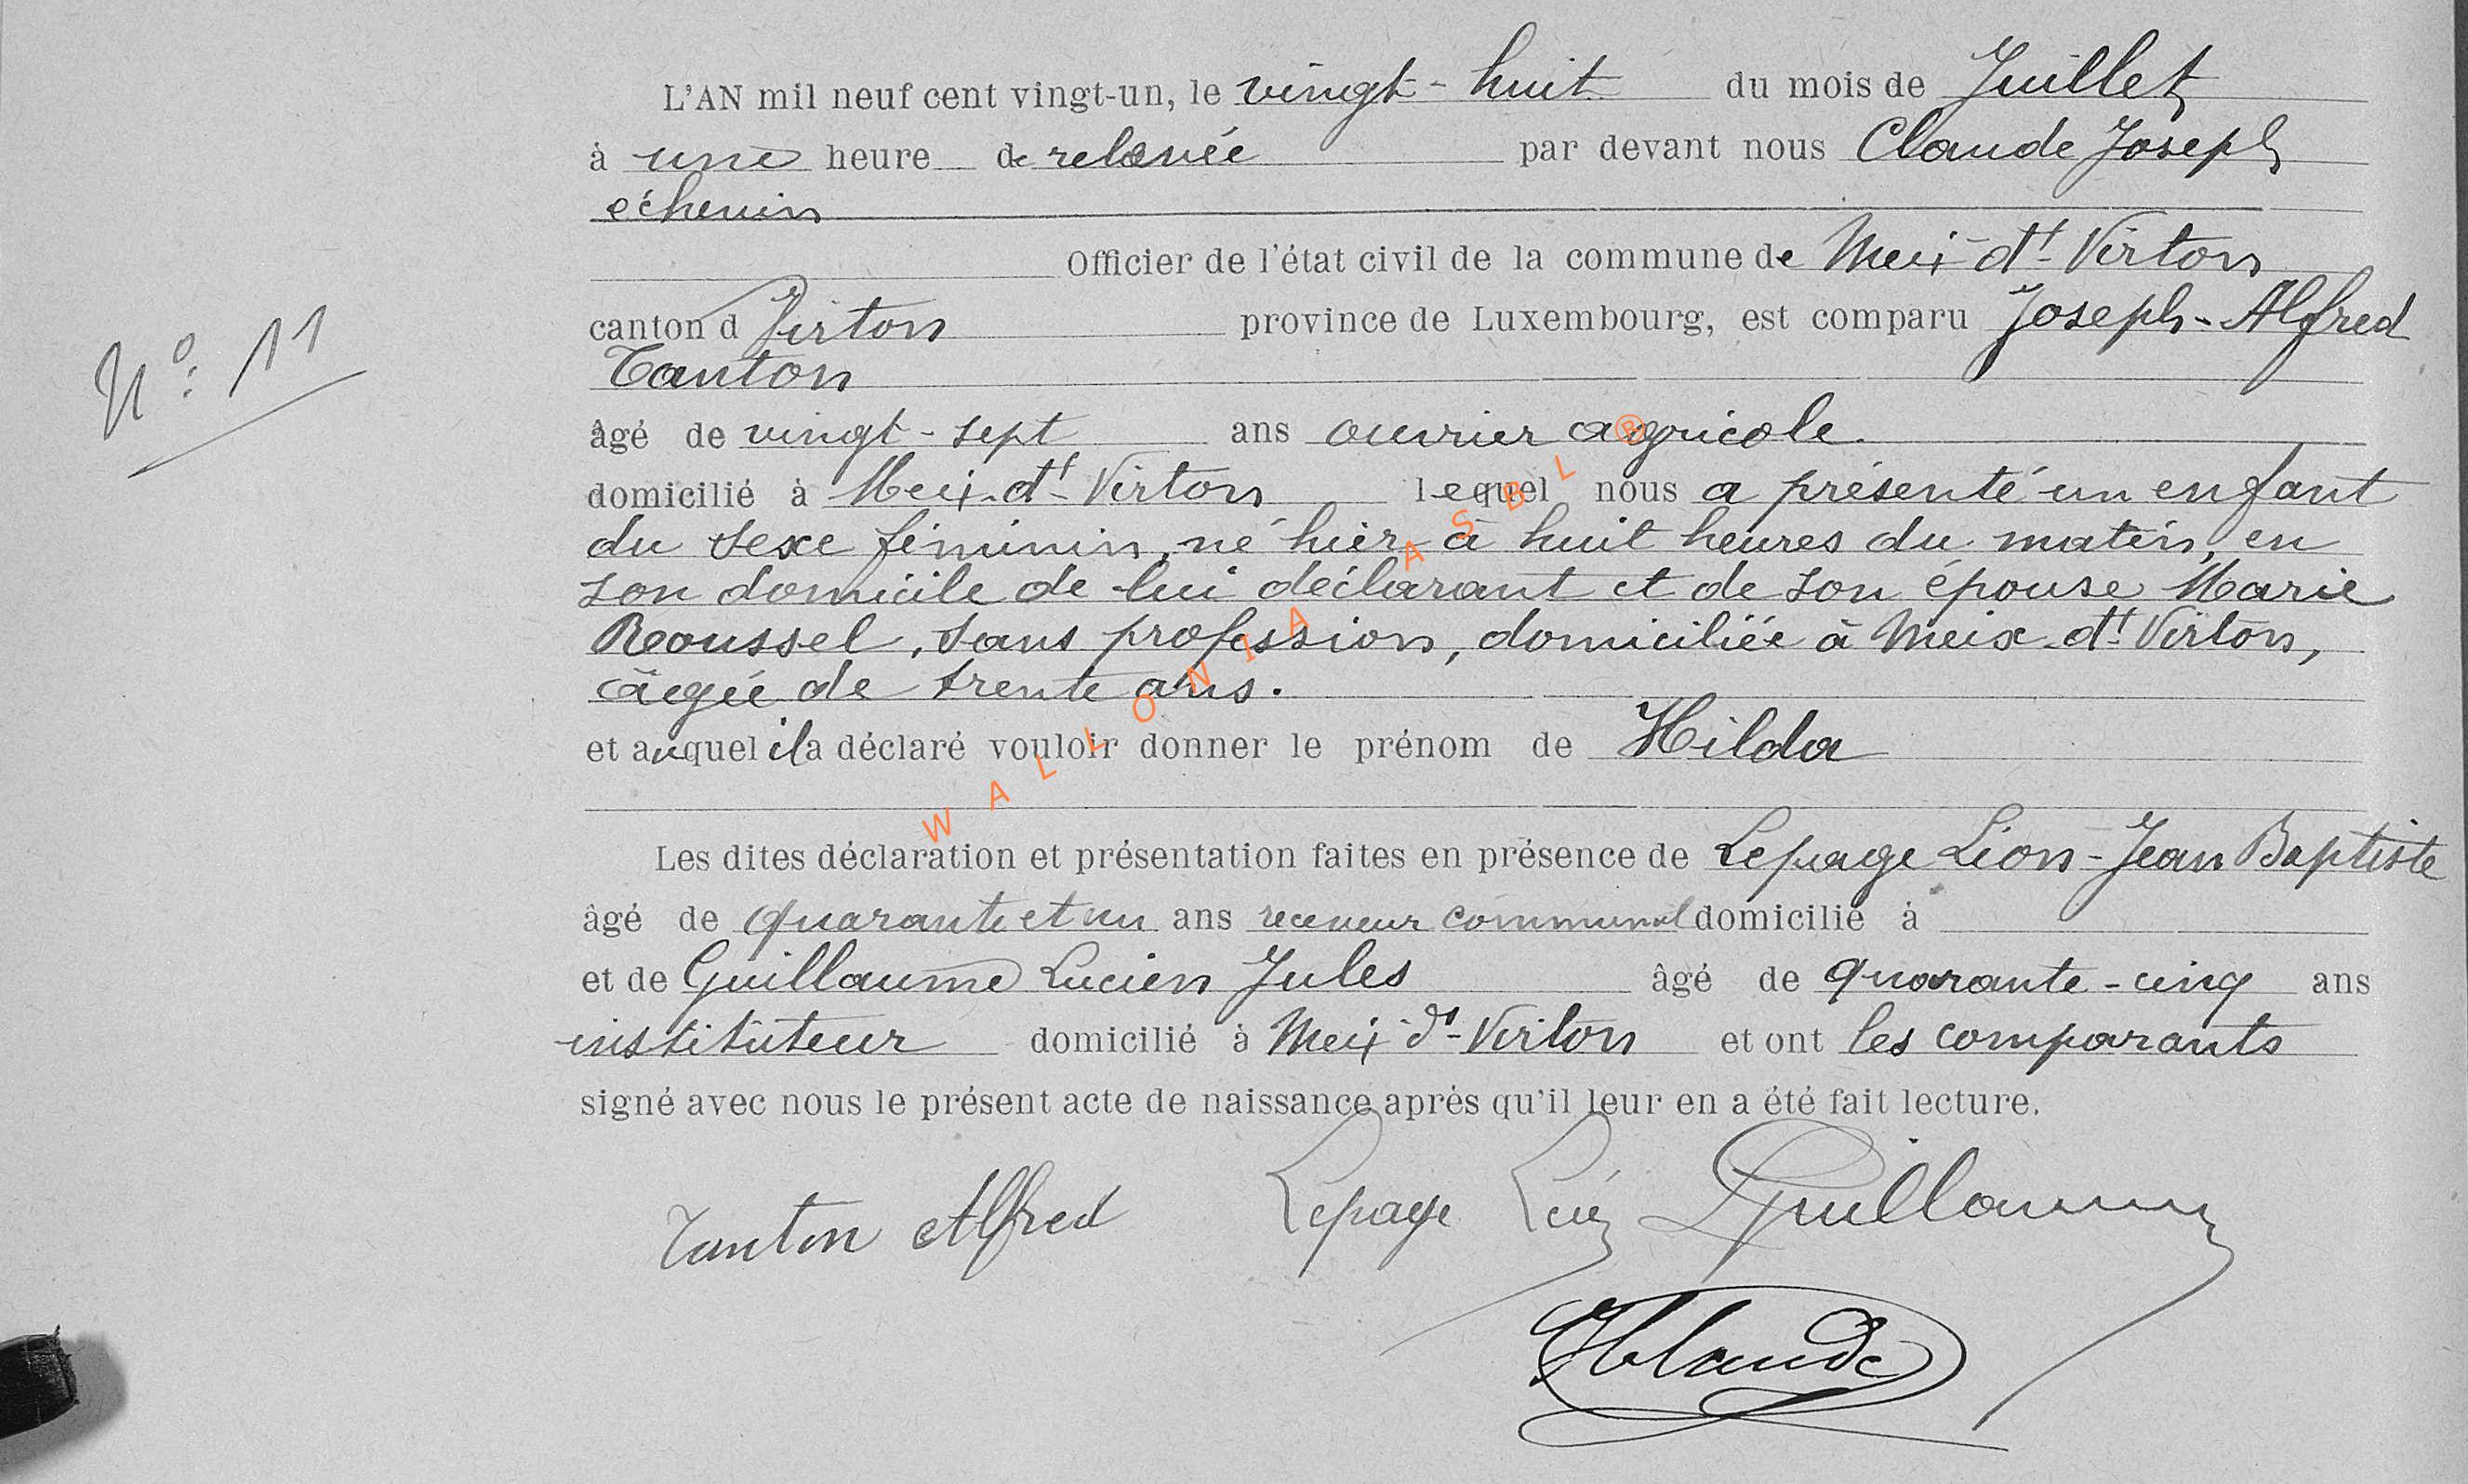 L'AN mil neuf cent vingt-un, le vingt-huit du mois de Juillet
à une heure de relevée par devant nous Claude Joseph
échevin
Officier de l'état civil de la commune de Meix-dt-Virton
canton d Virton province de Luxembourg, est comparu Joseph-Alfred
Tanton
N°: 11
âgé de vingt-sept ans ouvrier agricole
domicilié à Meix-dt-Virton lequel nous a présenté un enfant
du sexe féminin, né hier à huit heures du matin, en
son domicile de lui déclarant et de son épouse Marie
Roussel, sans profession, domiciliée à Meix-dt-Virton,
âgée de trente ans.
et auquel il a déclaré vouloir donner le prénom de Hilda
WALLONIA ASBL ®
Les dites déclaration et présentation faites en présence de Lepage Léon-Jean Baptiste
âgé de quarante et un ans receveur communal domicilié à
et de Guillaume Lucien Jules âgé de quarante-cinq ans
instituteur domicilié à Meix-dt-Virton et ont les comparants
signé avec nous le présent acte de naissance après qu'il leur en a été fait lecture.
Tanton Alfred Lepage Léon LGuillaume
JClaude